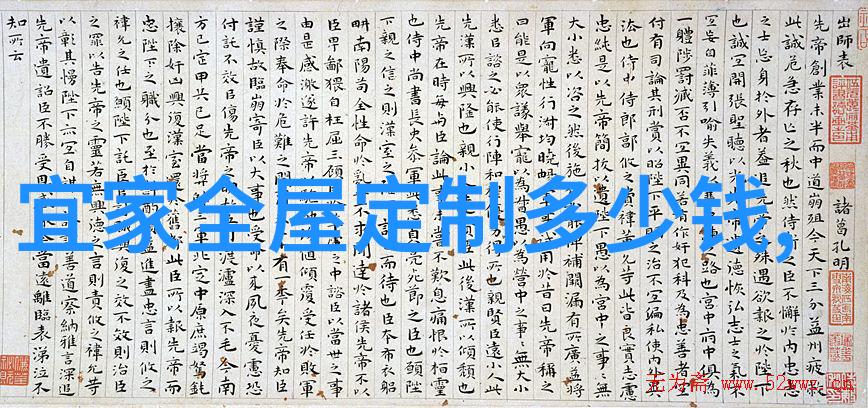 宜家全屋定制多少钱,
出師表
諸葛孔明
先帝創業未半而中道崩殂今天下三分益州疲敝
此誠危急存亡之秋也然侍衛之臣不懈於內忠志
之士忘身於外者蓋追先帝殊遇欲報之於陛下
也誠宜開張聖聽以光先帝德恢弘志士之氣不
宜妄自菲薄引喻失義以路也宮中府中俱為
一體陟罰臧否不宜異同若有作奸犯科及為忠善者宜
付有司論其刑賞以昭陛下平明之治不宜偏私使內外異
法也侍中侍郎郭攸之費禕董允等此皆良實志慮
忠純是以先帝簡拔以遺陛下愚以為宮中之事事無
大小悉以咨之然後施裨補闕漏有所廣益將
軍向寵性行淑均曉暢用於昔日先帝稱之
曰能是以眾議舉寵以為督愚以為營中之事事無大小
悉臣諮之必能使行陣和得所也親賢臣遠小人此
先漢所以興隆也親小人此後漢所以傾頹也
先帝在時每與臣論此事嘗不歎息痛恨於桓靈
也侍中尚書長史參軍此悉貞亮死節之臣也願陛
下親之信之則漢室之而待也臣本布衣躬
耕南陽苟全性命於亂聞達於諸侯先帝不以
臣卑鄙猥自枉屈三顧之中諮臣以當世之事
由是感激遂許先帝值傾覆受任於敗軍
之際奉命於危難之間有一年矣先帝知臣
謹慎故臨崩寄臣以大事也受命以來夙夜憂慮恐
付託不效臣傷先帝之渡瀘深入不毛今南
方已定甲兵已足當獎三軍北定中原庶竭駑鈍
攘除奸凶興復漢室還舊此臣所以報先帝而
忠陛下之職分也至於益進盡忠言則攸之
禕允之任也願陛下託臣興復之效不效則治臣
之罪以告先帝之靈若無興德之言則責攸之禕允等
以彰其慢陛下亦宜自善道察納雅言深追
先帝遺詔臣不勝受今當遠離臨表涕泣不
知所云
无为斋 www.52wwz.cn